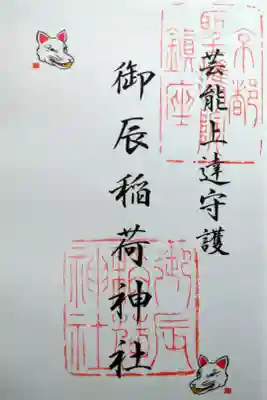 京都
聖護院
鎮座
芸能上達守護
御辰稲荷神社
御辰
稲荷
神社